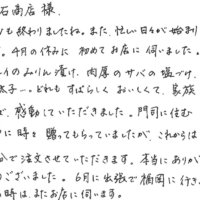 石商店 様、
も終わりましたね。また、忙しい日々が始まり
。4月の休みに 初めてお店に伺いました。
イのみりん漬け、肉厚のサバの塩づけ、
太子…どれもすばらしく おいしくて、家族
で、感動していただきました。門司に住む
に時々贈ってもらっていましたが、これからは
分で注文させていただきます。本当にありが
ございました。6月に出張で福岡に行き
時は、またお店に伺います。